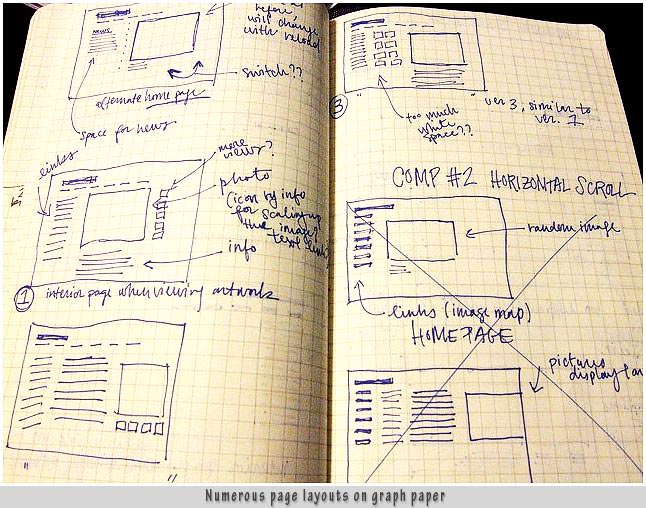 before
will change
with reload
NEWS
switch??
alternate home page
space for news
links
more
views?
photo
(icon by info
for scaling up
the image?
text links?)
info
① interior page when viewing artwork
" "
③
" ver 3, similar to
ver. 1
too much
white
space??
COMP #2 HORIZONTAL SCROLL
random image
links (image map)
HOMEPAGE
pictures
display
Numerous page layouts on graph paper